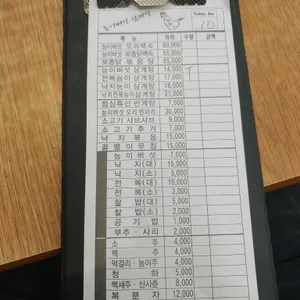 능이버섯 삼계탕
Table No
10
메 뉴 가격 수량 금액
능이버섯 오리백숙 60,000
능이버섯 토종닭백숙 60,000
토종닭 볶음탕 55,000
능이버섯 삼계탕 14,000
전복능이 삼계탕 17,000
낙지능이 삼계탕 18,000
낙지전복능이삼계탕 21,000
점심특선 반계탕 7,500
능이버섯 오리 반마리 30,000
소고기 샤브샤브 9,000
소고기 추가 7,000
낙지볶음 15,000
골뱅이무침 15,000
능이버섯 7,000
낙지(대) 10,000
낙지(소) 5,000
전복(대) 10,000
전복(소) 3,000
찰밥(대) 5,000
찰밥(소) 2,000
공기밥 1,000
부추·사리 2,000
소 주 4,000
맥 주 4,000
막걸리·능이주 4,000
청 하 5,000
백세주·산사춘 8,000
복분자 12,000